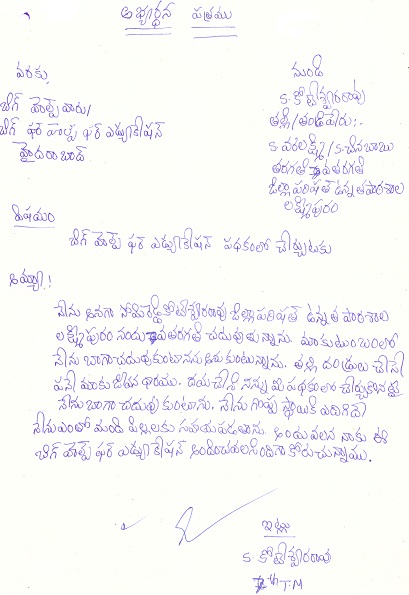 అభ్యర్ధన పత్రము
వరకు
నుండి
బిగ్ హెల్ప్ వారు,
బిగ్ హెల్ప్ ఫర్ ఎడ్యుకేషన్
హైదరాబాద్
S. కోటేశ్వరరావు
తల్లి/తండ్రిపేరు:-
S వరలక్ష్మి/S. చినబాబు
తరగతి 7వతరగతి
జిల్లాపరిషత్ ఉన్నతపాఠశాల
లక్ష్మీపురం
విషయం
బిగ్ హెల్ప్ ఫర్ ఎడ్యుకేషన్ పథకంలో చేర్చుటకు
అయ్యా!
నేను అనగా కోటేశ్వరరావు జిల్లాపరిషత్ ఉన్నత పాఠశాల
లక్ష్మీపురం నందు 7వతరగతి చదువుతున్నాను. మా కుటుంబంలో
నేను బాగా చదువుకుంటానని అనుకుంటున్నాను. తల్లి దండ్రులు చేసే
పనే మాకు జీవన ధారము. దయచేసి నన్ను మీ పథకంలో చేర్చుకొనట్లైతే
నేను బాగా చదువుకుంటాను. నేను గొప్ప స్థాయికి ఎదిగితే
నేను ఎంతో మంది పిల్లలకు సహాయపడతాను. అందువలన నాకు ఈ
బిగ్ హెల్ప్ ఫర్ ఎడ్యుకేషన్ అందించవలసిందిగా కోరుచున్నాము.
ఇట్లు
S. కోటేశ్వరరావు
7th T.M